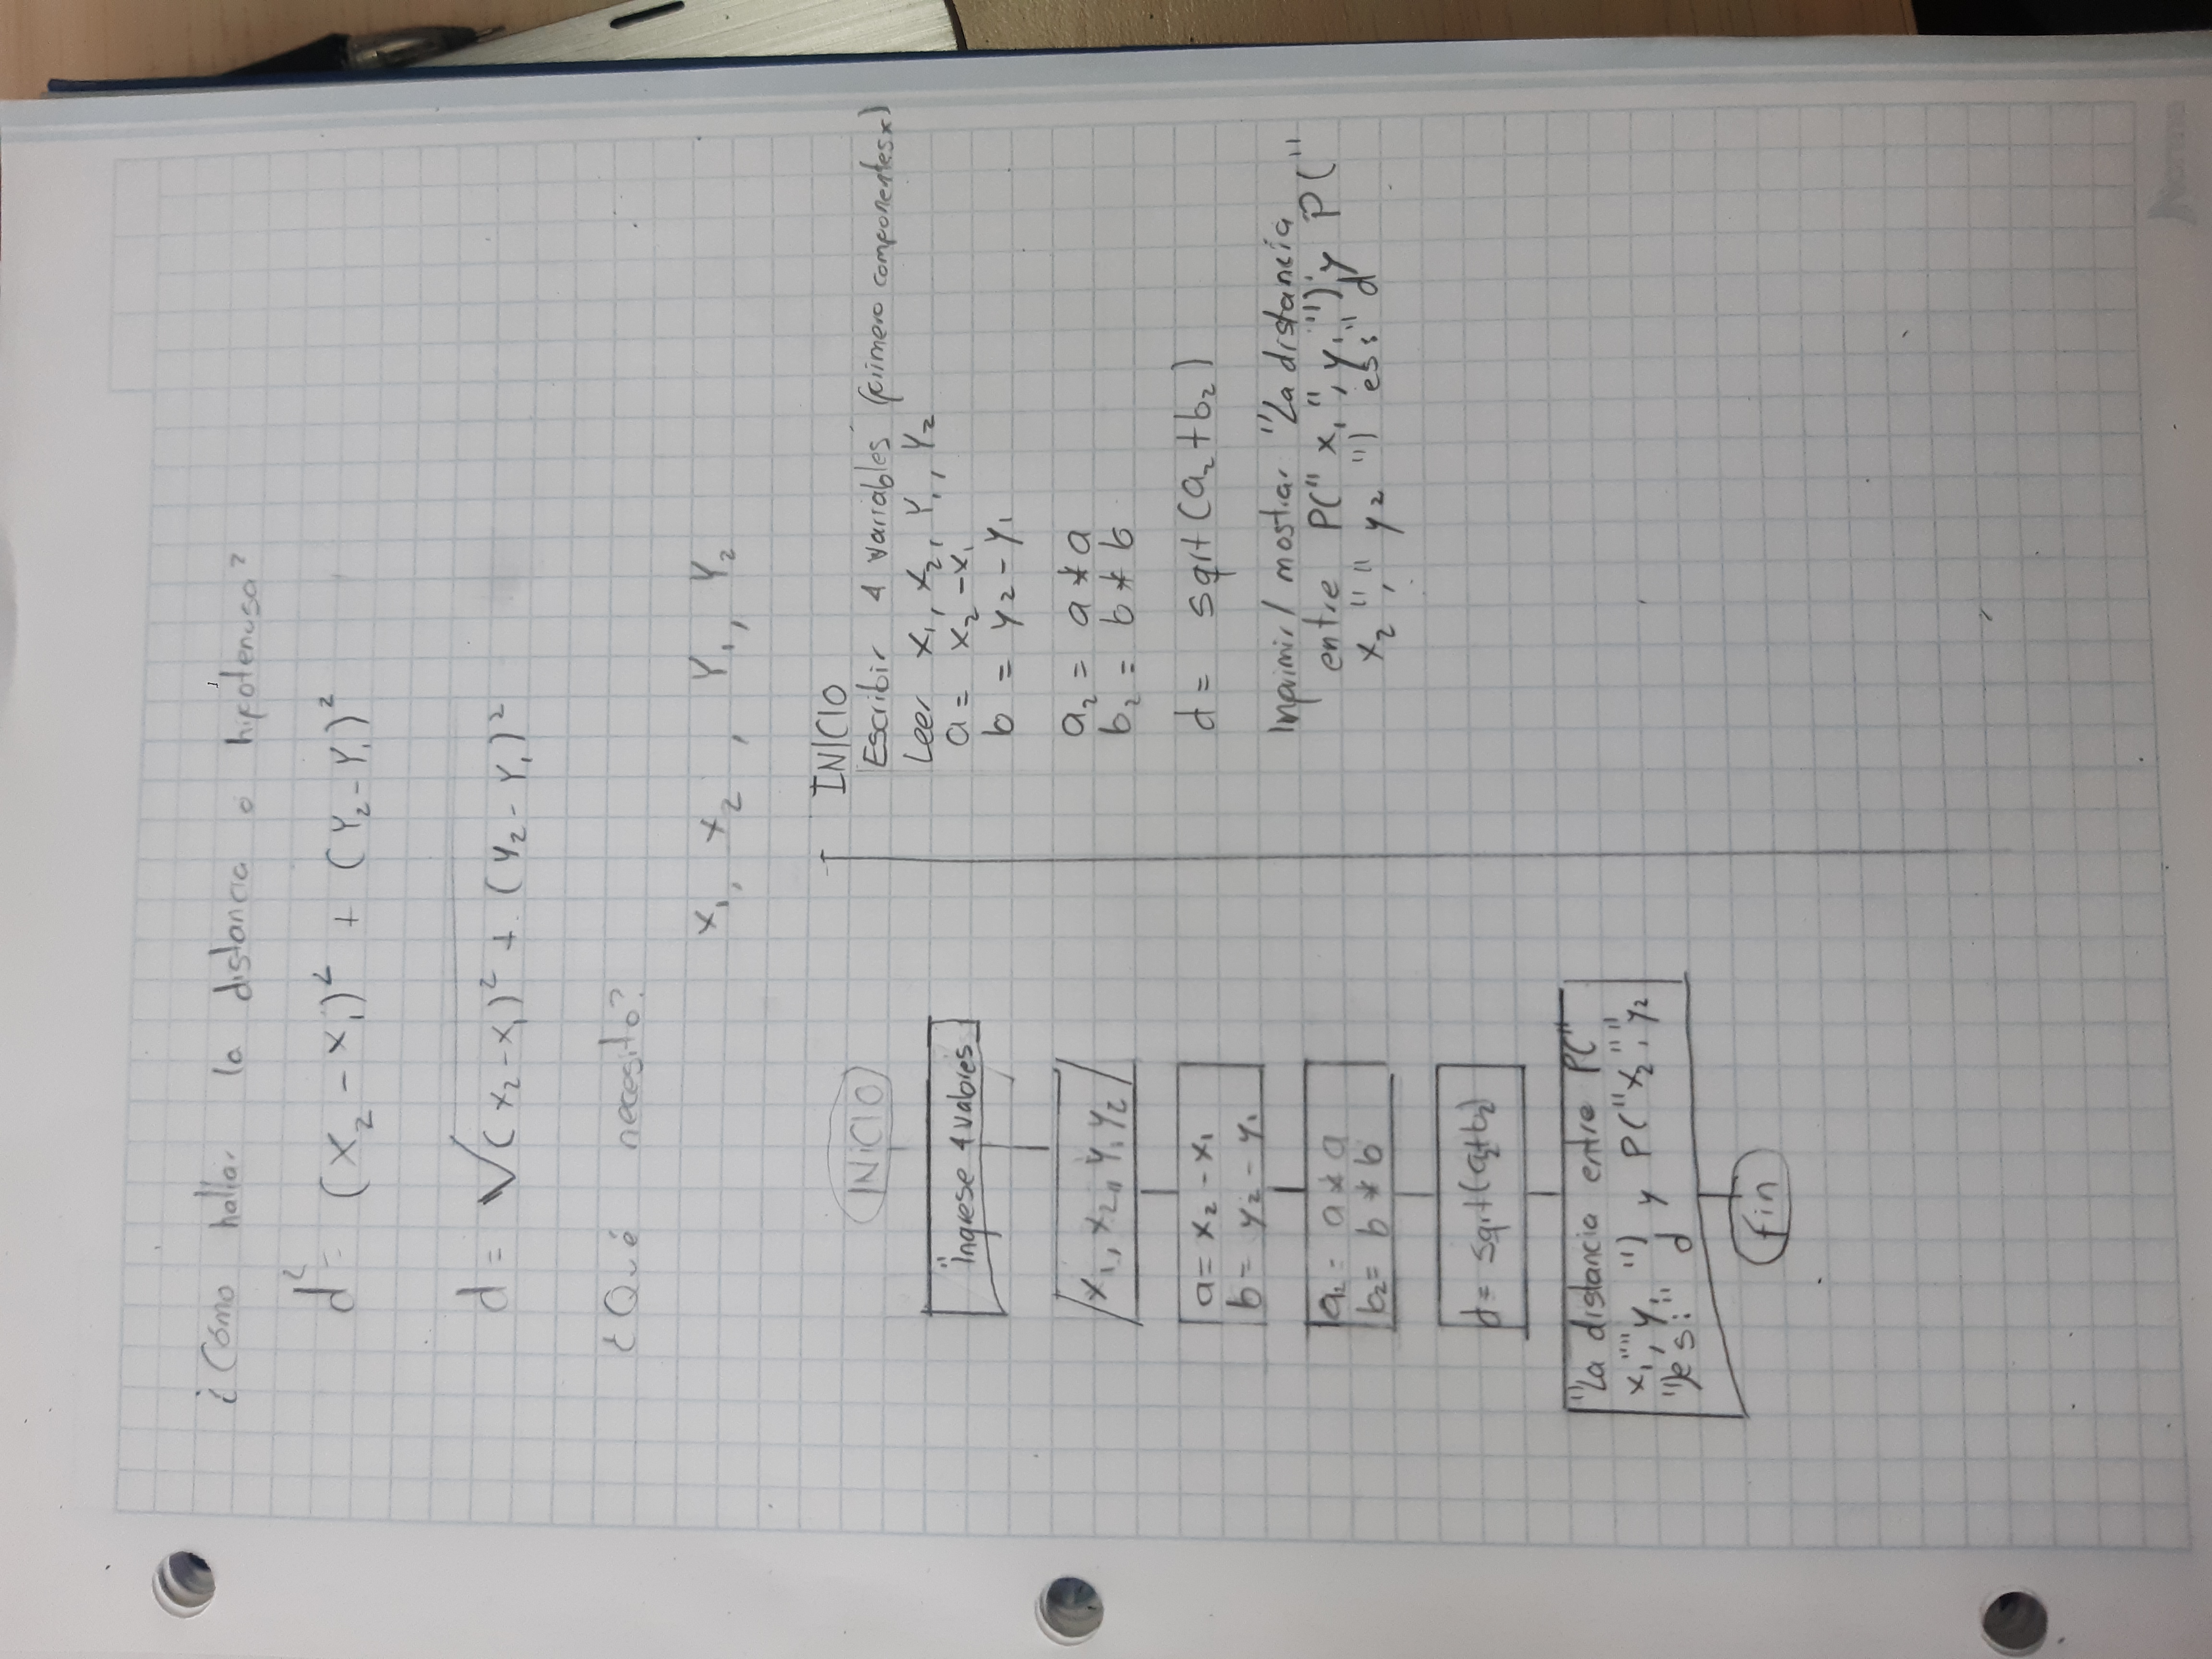 ¿Cómo hallar la distancia o hipotenusa?
d² = (x₂ - x₁)² + (Y₂ - Y₁)²
d = √(x₂ - x₁)² + (Y₂ - Y₁)²
¿Qué necesito?
x₁, x₂, Y₁, Y₂
INICIO
"Ingrese 4 valores
x₁, x₂,, Y, Y₂
a = x₂ - x₁
b = y₂ - y₁
a₂ = a * a
b₂ = b * b
d = sqrt(a₂+b₂)
"La distancia entre P("
x₁","y₁ ") y P("x₂","y₂
")es:" d
fin
INICIO
Escribir 4 variables (primero componentes x)
Leer x₁, x₂, Y₁, Y₂
a = x₂ - x₁
b = y₂ - y₁
a₂ = a * a
b₂ = b * b
d = sqrt(a₂ + b₂)
Imprimir/ mostrar "La distancia
entre P(" x₁ ", y₁ ") y P("
x₂ "," y₂ ") es:" d
Norma